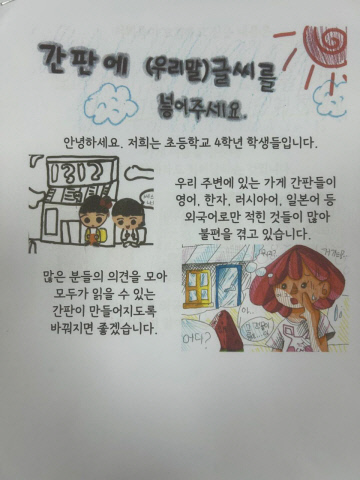 간판에 (우리말)글씨를
넣어주세요.
안녕하세요. 저희는 초등학교 4학년 학생들입니다.
우리 주변에 있는 가게 간판들이
영어, 한자, 러시아어, 일본어 등
외국어로만 적힌 것들이 많아
불편을 겪고 있습니다.
많은 분들의 의견을 모아
모두가 읽을 수 있는
간판이 만들어지도록
바꿔지면 좋겠습니다.
어디?